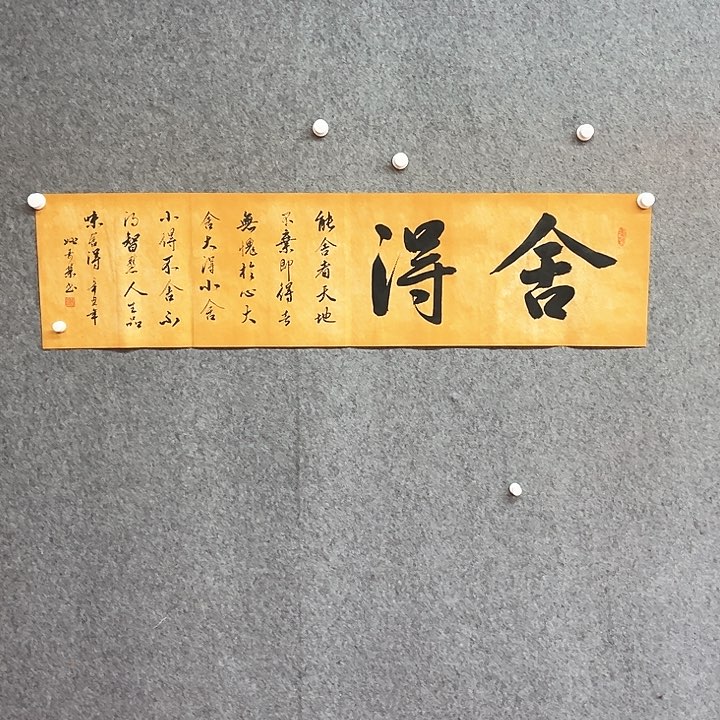 舍得
能舍者天地
不棄即得者
無愧於心大
舍大得小舍
小得不舍不
得智慧人生品
味舍得 辛丑年